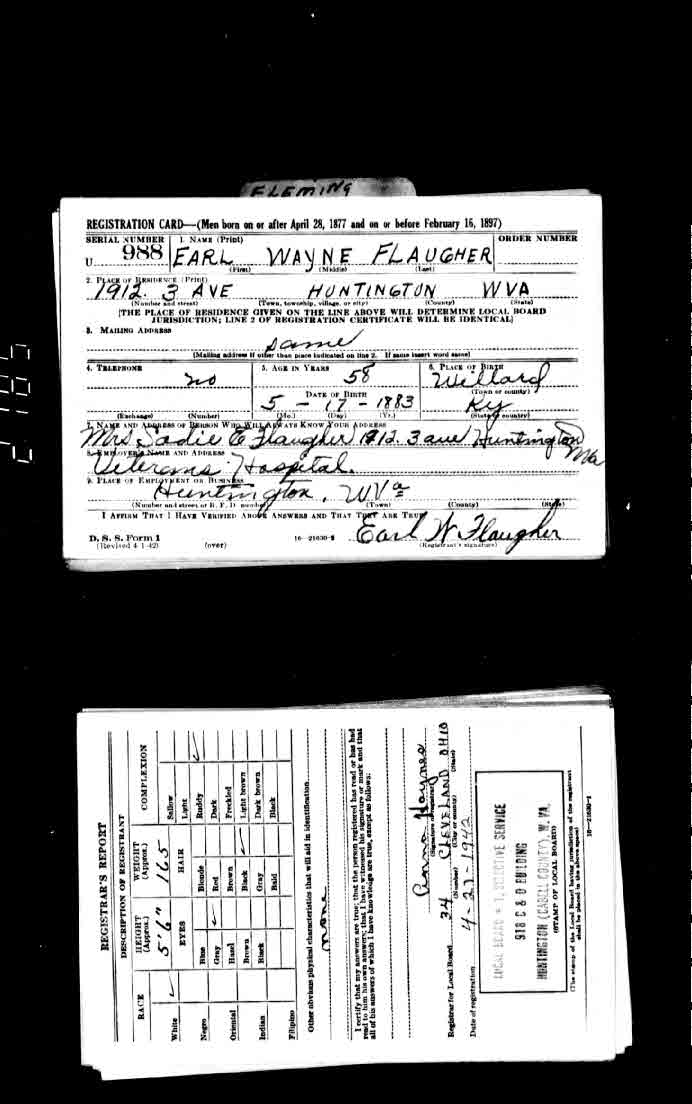 FLEMING
REGISTRATION CARD—(Men born on or after April 28, 1877 and on or before February 16, 1897)
SERIAL NUMBER 1. NAME (Print) ORDER NUMBER
U 988 EARL WAYNE FLAUGHER
(First) (Middle) (Last)
2. PLACE OF RESIDENCE (Print)
1912. 3 AVE HUNTINGTON WVA
(Number and street) (Town, township, village, or city) (County) (State)
[THE PLACE OF RESIDENCE GIVEN ON THE LINE ABOVE WILL DETERMINE LOCAL BOARD
JURISDICTION; LINE 2 OF REGISTRATION CERTIFICATE WILL BE IDENTICAL]
3. MAILING ADDRESS
same
[Mailing address if other than place indicated on line 2. If same insert word same]
4. TELEPHONE 5. AGE IN YEARS 6. PLACE OF BIRTH
no 58 Willard
DATE OF BIRTH (Town or county)
5 - 17 - 1883 Ky
(Exchange) (Number) (Mo.) (Day) (Yr.) (State or country)
7. NAME AND ADDRESS OF PERSON WHO WILL ALWAYS KNOW YOUR ADDRESS
Mrs Sadie E Flaugher 1912. 3 ave Huntington
8. EMPLOYER'S NAME AND ADDRESS
Veterans Hospital.
9. PLACE OF EMPLOYMENT OR BUSINESS
Huntington, WVa
(Number and street or R. F. D. number) (Town) (County) (State)
I AFFIRM THAT I HAVE VERIFIED ABOVE ANSWERS AND THAT THEY ARE TRUE
D. S. S. Form 1
(Revised 4-1-42) (over) 16—21630-2 Earl W Flaugher
(Registrant's signature)
REGISTRAR'S REPORT
DESCRIPTION OF REGISTRANT
RACE HEIGHT (Approx.) WEIGHT (Approx.) COMPLEXION
5'6" 165
White EYES HAIR Sallow
Light
Negro Blue Blonde Ruddy
Gray Red Dark
Oriental Hazel Brown Freckled
Brown Black Light brown
Indian Black Gray Dark brown
Bald Black
Filipino
Other obvious physical characteristics that will aid in identification
none
I certify that my answers are true; that the person registered has read or has had
read to him his own answers; that I have witnessed his signature or mark and that
all of his answers of which I have knowledge are true, except as follows:
Haynes
(Signature of registrar)
Registrar for Local Board 34 CLEVELAND OHIO
(Number) (City or county) (State)
Date of registration 4-27-1942
LOCAL BOARD 1, SELECTIVE SERVICE
918 C & O BUILDING
HUNTINGTON (CABELL COUNTY), W. VA.
(STAMP OF LOCAL BOARD)
(The stamp of the Local Board having jurisdiction of the registrant
shall be placed in the above space)
16—21630-1